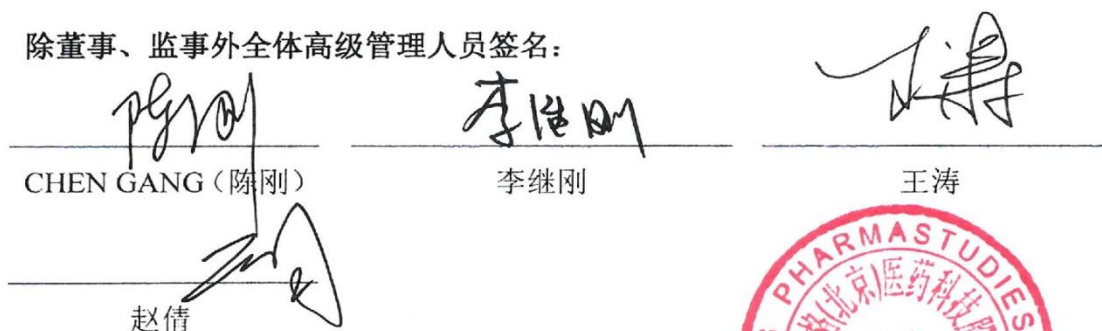 除董事、监事外全体高级管理人员签名：
陈刚
李继刚
王涛
CHEN GANG（陈刚）
李继刚
王涛
赵倩
PHARMASTUDIES
(北京)医药科技